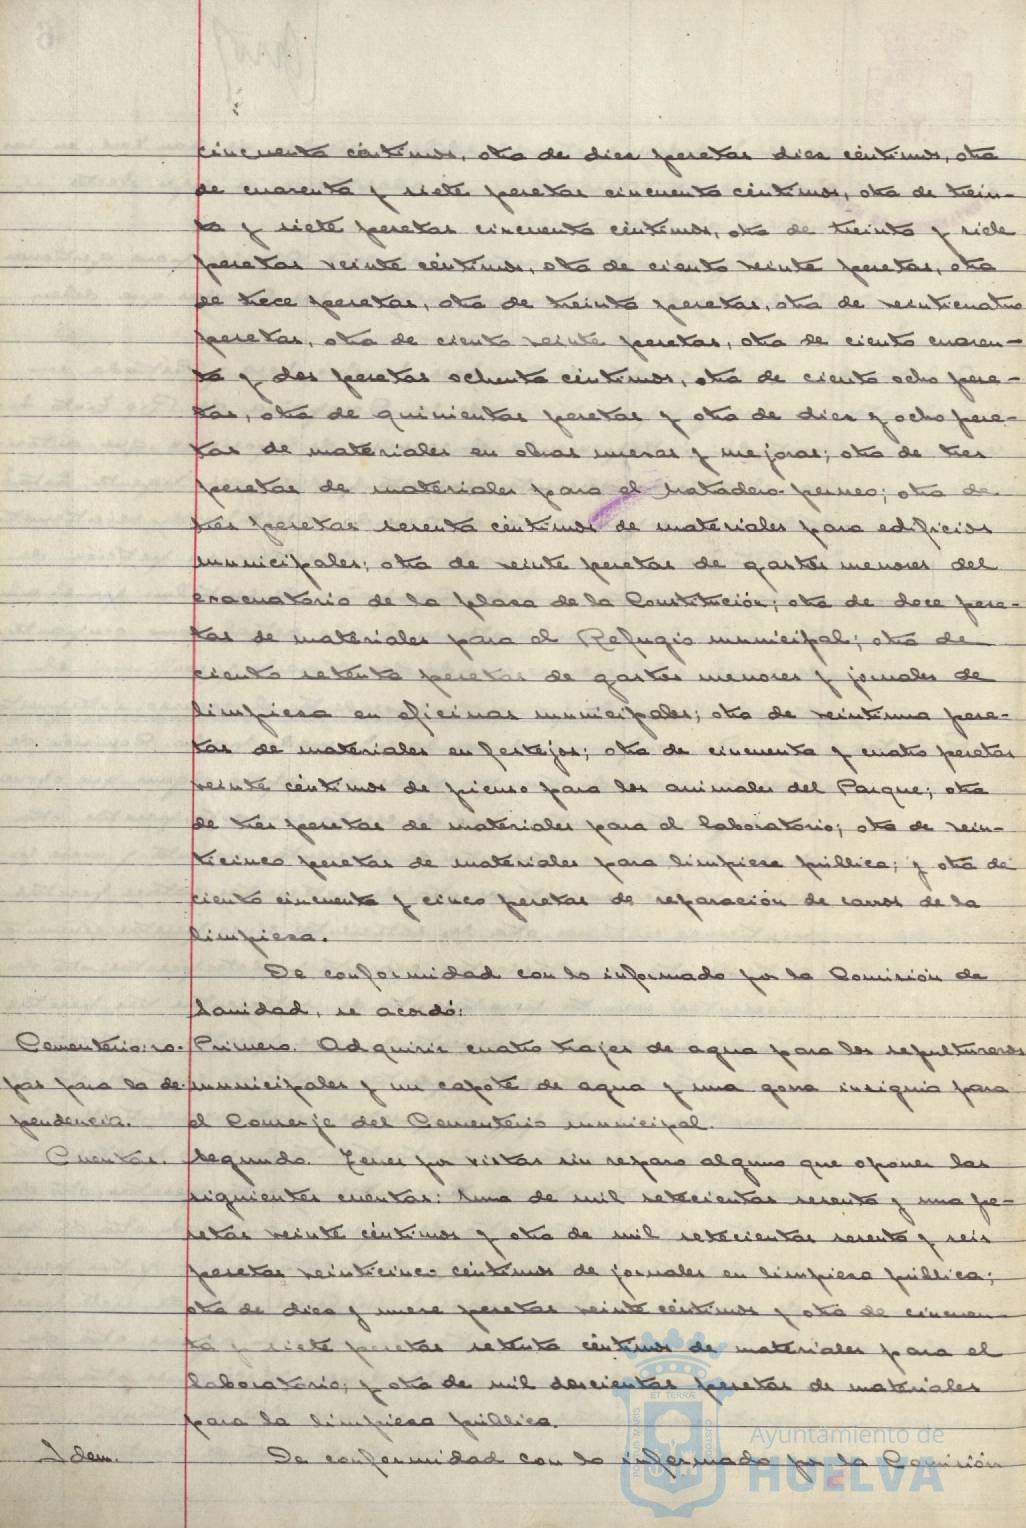 cincuenta céntimos, otra de diez pesetas diez céntimos, otra
de cuarenta y siete pesetas cincuenta céntimos, otra de trein-
ta y siete pesetas cincuenta céntimos, otra de treinta y siete
pesetas veinte céntimos, otra de ciento veinte pesetas, otra
de trece pesetas, otra de treinta pesetas, otra de veinticuatro
pesetas, otra de ciento veinte pesetas, otra de ciento cuaren-
ta y dos pesetas ochenta céntimos, otra de ciento ocho pese-
tas, otra de quinientas pesetas y otra de diez y ocho pese-
tas de materiales en obras nuevas y mejoras; otra de tres
pesetas de materiales para el matadero perneo; otra de
tres pesetas sesenta céntimos de materiales para edificios
municipales; otra de veinte pesetas de gastos menores del
evacuatorio de la plaza de la Constitución; otra de doce pese-
tas de materiales para el Refugio municipal; otra de
ciento setenta pesetas de gastos menores y jornales de
limpieza en oficinas municipales; otra de veintiuna pese-
tas de materiales en festejos; otra de cincuenta y cuatro pesetas
veinte céntimos de pienso para los animales del Parque; otra
de tres pesetas de materiales para el laboratorio; otra de vein-
ticinco pesetas de materiales para limpieza pública; y otra de
ciento cincuenta y cinco pesetas de reparación de carros de la
limpieza.
De conformidad con lo informado por la Comisión de
Sanidad, se acordó:
Cementerio: ro-
pas para la de-
pendencia.
Primero. Adquirir cuatro trajes de agua para los sepultureros
municipales y un capote de agua y una gorra insignia para
el Conserje del Cementerio municipal.
Cuentas.
Segundo. Tener por vistas sin reparo alguno que oponer las
siguientes cuentas: una de mil setecientas sesenta y una pe-
setas veinte céntimos y otra de mil setecientas sesenta y seis
pesetas veinticinco céntimos de jornales en limpieza pública;
otra de diez y nueve pesetas veinte céntimos y otra de cincuen-
ta y siete pesetas setenta céntimos de materiales para el
laboratorio; y otra de mil doscientas pesetas de materiales
para la limpieza pública.
Idem.
De conformidad con lo informado por la Comisión
Ayuntamiento de
HUELVA
PORTUS MARIS
ET TERRÆ
CUSTODIA